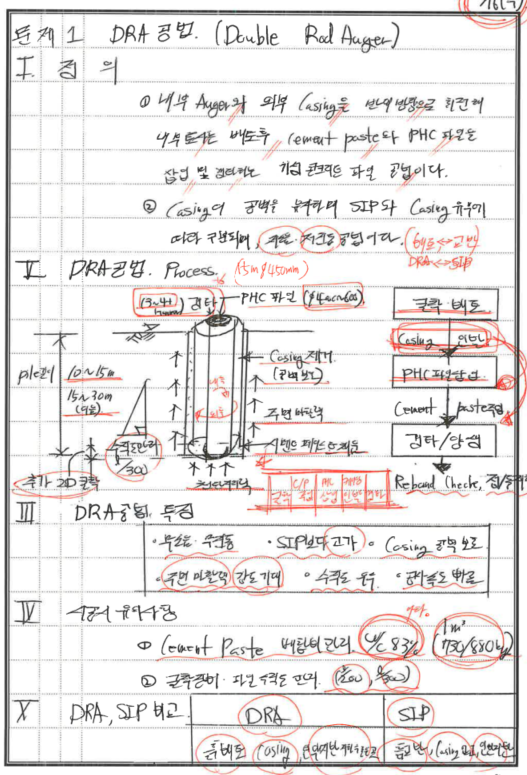 문제 1 DRA 공법. (Double Rod Auger)
I. 정 의
① 내부 Auger와 외부 Casing을 반대방향으로 회전해
내부 토사는 배토후, cement paste와 PHC 파일을
삽입 및 경타하는 기성 콘크리트 파일 공법이다.
② Casing이 공벽을 유지하며 SIP와 Casing 유무에
따라 구분되며, 저소음 저진동 공법이다.
(배토↔교반)
DRA↔SIP
V DRA공법. Process.
(15m φ450mm)
경타
PHC 파일 (φ400~600)
굴착·배토
Casing 인발
PHC 파일삽입
Cement paste주입
경타/양생
Rebound Check,
pile길이
10~15m
15~30m
(이음)
Casing 제거
(공벽보호)
주변 마찰력
시멘트 페이스트
수직도관리
1/300
추가 2D 굴착
선단지지력
굴착
C/P
III DRA공법 특징
· 무소음·무진동 · SIP보다 고가 · Casing 공벽 보호
· 주변 마찰력 강도 기대 · 수직도 우수 · 굴착속도 빠름
IV 시공시 유의사항
① Cement Paste 배합비 관리. W/C 83%
1m³
(730/880kg)
② 굴착장비·파일 수직도 관리.
V DRA, SIP 비교
DRA
SIP
흙배토 Casing,
흙교반, Casing